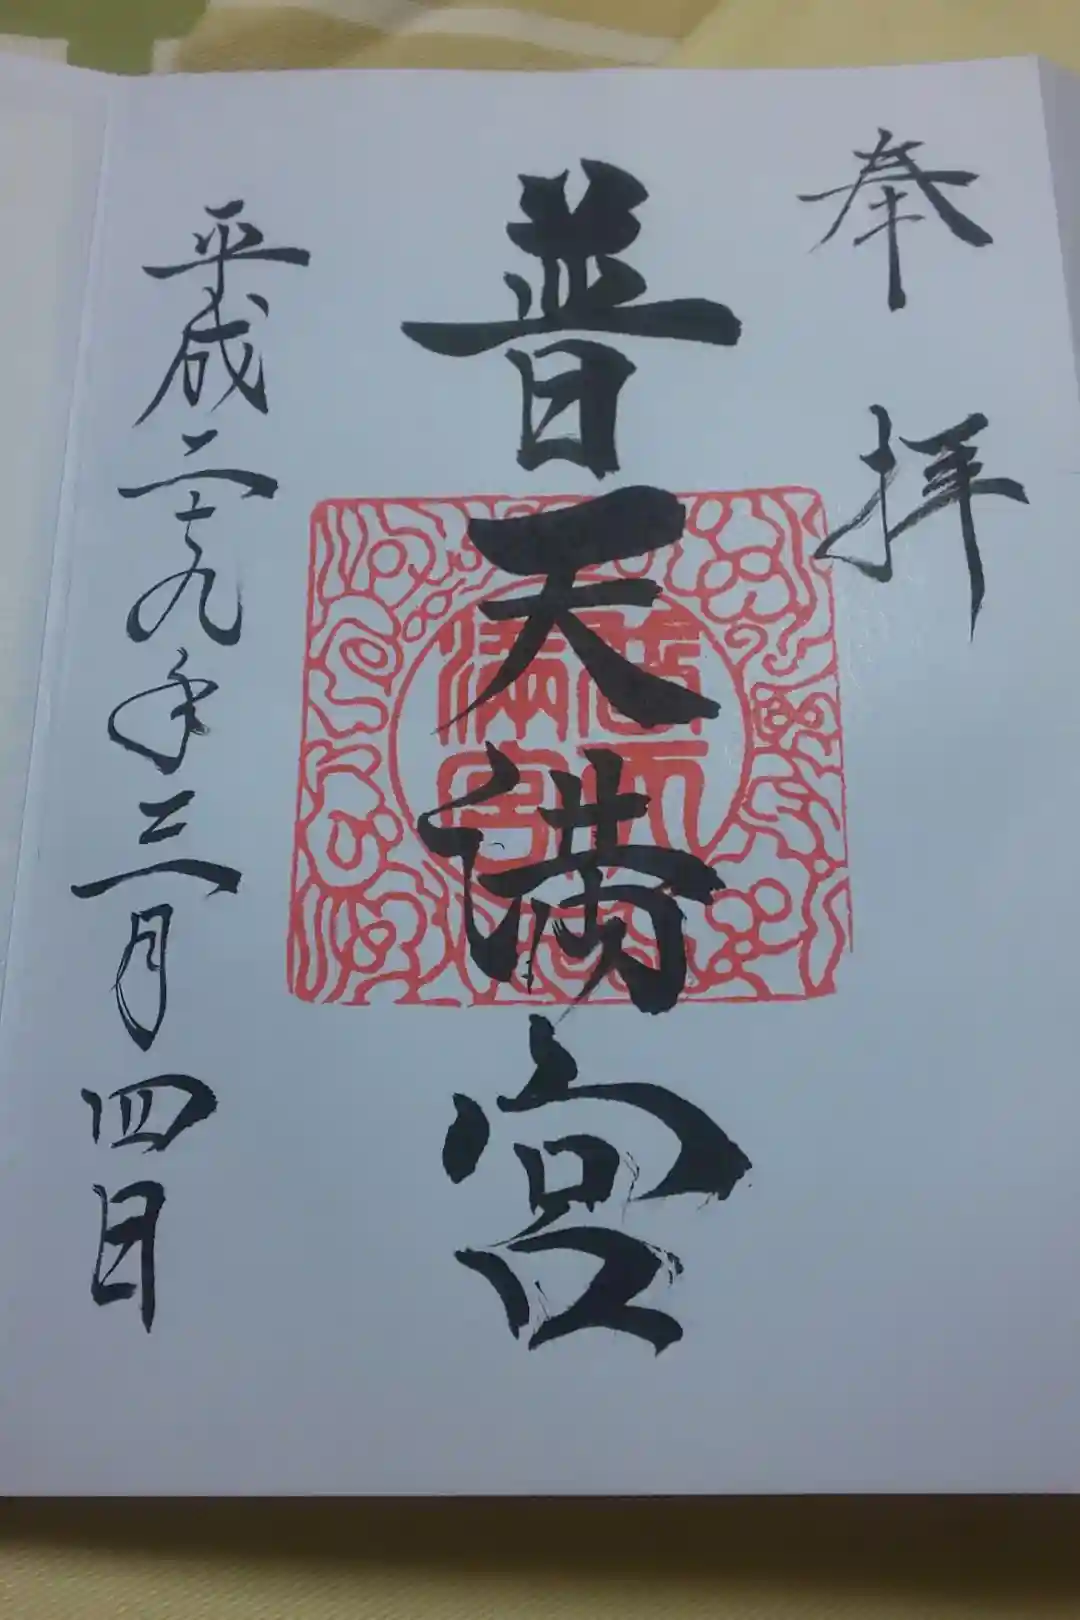 奉拝
普天満宮
普天満宮
平成二十九年三月四日